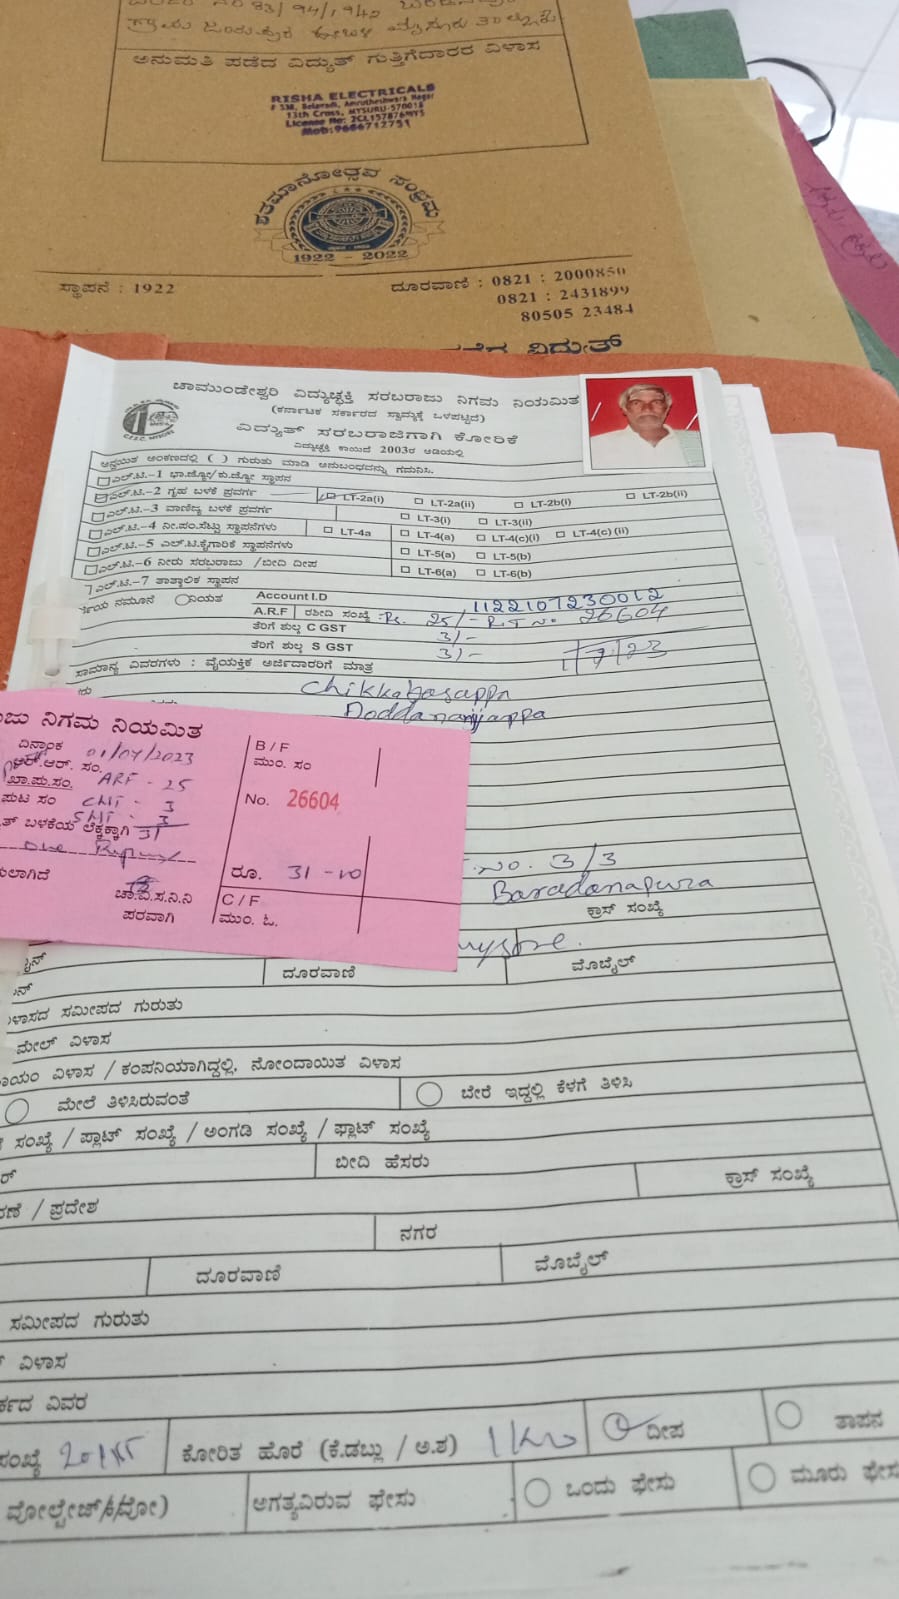 ಗ್ರಾಮ ಜಯಪುರ ಹೋಬಳಿ ಮೈಸೂರು ತಾಲ್ಲೂಕು
ಅನುಮತಿ ಪಡೆದ ವಿದ್ಯುತ್ ಗುತ್ತಿಗೆದಾರರ ವಿಳಾಸ
RISHA ELECTRICALS
13th Cross, MYSURU-570018
Mob:9686712751
ಶತಮಾನೋತ್ಸವ ಸಂಭ್ರಮ
1922 - 2022
ಸ್ಥಾಪನೆ : 1922
ದೂರವಾಣಿ : 0821 : 2000850
0821 : 2431899
80505 23484
ವಿದ್ಯುತ್
ಚಾಮುಂಡೇಶ್ವರಿ ವಿದ್ಯುಚ್ಛಕ್ತಿ ಸರಬರಾಜು ನಿಗಮ ನಿಯಮಿತ
(ಕರ್ನಾಟಕ ಸರ್ಕಾರದ ಸ್ವಾಮ್ಯಕ್ಕೆ ಒಳಪಟ್ಟಿದೆ)
ವಿದ್ಯುತ್ ಸರಬರಾಜಿಗಾಗಿ ಕೋರಿಕೆ
ವಿದ್ಯುಚ್ಛಕ್ತಿ ಕಾಯಿದೆ 2003ರ ಅಡಿಯಲ್ಲಿ
ಅನ್ವಯಿತ ಅಂಕಣದಲ್ಲಿ ( ) ಗುರುತು ಮಾಡಿ ಅನುಬಂಧವನ್ನು ಗಮನಿಸಿ.
ಎಲ್.ಟಿ.-1 ಭಾ.ಜ್ಯೋ/ಕು.ಜ್ಯೋ ಸ್ಥಾಪನ
ಎಲ್.ಟಿ.-2 ಗೃಹ ಬಳಕೆ ಪ್ರವರ್ಗ LT-2a(i) LT-2a(ii) LT-2b(i) LT-2b(ii)
ಎಲ್.ಟಿ.-3 ವಾಣಿಜ್ಯ ಬಳಕೆ ಪ್ರವರ್ಗ LT-3(i) LT-3(ii)
ಎಲ್.ಟಿ.-4 ನೀ.ಪಂ.ಸೆಟ್ಟು ಸ್ಥಾಪನೆಗಳು LT-4a LT-4(a) LT-4(c)(i) LT-4(c) (ii)
ಎಲ್.ಟಿ.-5 ಎಲ್.ಟಿ.ಕೈಗಾರಿಕೆ ಸ್ಥಾಪನೆಗಳು LT-5(a) LT-5(b)
ಎಲ್.ಟಿ.-6 ನೀರು ಸರಬರಾಜು /ಬೀದಿ ದೀಪ LT-6(a) LT-6(b)
ಎಲ್.ಟಿ.-7 ತಾತ್ಕಾಲಿಕ ಸ್ಥಾಪನ
ನಮೂನೆ ನಿಯತ Account I.D 1122107230012
A.R.F ರಶೀದಿ ಸಂಖ್ಯೆ Rs. 25/- R.T No 26604
ತೆರಿಗೆ ಶುಲ್ಕ C GST 3/-
ತೆರಿಗೆ ಶುಲ್ಕ S GST 3/- 1/7/23
ಸಾಮಾನ್ಯ ವಿವರಗಳು : ವೈಯಕ್ತಿಕ ಅರ್ಜಿದಾರರಿಗೆ ಮಾತ್ರ
Chikkabasappa
Doddananjappa
ನಿಗಮ ನಿಯಮಿತ
ದಿನಾಂಕ 01/07/2023
ಆರ್.ಆರ್. ಸಂ.
ಖಾ.ಪು.ಸಂ. ARF - 25
ಪುಟ ಸಂ CMT - 3
ಬಳಕೆಯ ಲೆಕ್ಕಕ್ಕಾಗಿ SMT - 3
31
B / F
ಮುಂ. ಸಂ
No. 26604
ರೂ. 31-00
C / F
ಮುಂ. ಓ.
ಚಾ.ವಿ.ಸ.ನಿ.ನಿ
ಪರವಾಗಿ
No. 3/3
Baradanapura
ಕ್ರಾಸ್ ಸಂಖ್ಯೆ
mysore.
ದೂರವಾಣಿ ಮೊಬೈಲ್
ವಿಳಾಸದ ಸಮೀಪದ ಗುರುತು
ಮೇಲ್ ವಿಳಾಸ
ವಿಳಾಸ / ಕಂಪನಿಯಾಗಿದ್ದಲ್ಲಿ, ನೋಂದಾಯಿತ ವಿಳಾಸ
ಮೇಲೆ ತಿಳಿಸಿರುವಂತೆ ಬೇರೆ ಇದ್ದಲ್ಲಿ ಕೆಳಗೆ ತಿಳಿಸಿ
ಸಂಖ್ಯೆ / ಪ್ಲಾಟ್ ಸಂಖ್ಯೆ / ಅಂಗಡಿ ಸಂಖ್ಯೆ / ಫ್ಲಾಟ್ ಸಂಖ್ಯೆ
ಬೀದಿ ಹೆಸರು
ಕ್ರಾಸ್ ಸಂಖ್ಯೆ
/ ಪ್ರದೇಶ
ನಗರ
ದೂರವಾಣಿ ಮೊಬೈಲ್
ಸಮೀಪದ ಗುರುತು
ವಿಳಾಸ
ವಿವರ
ಸಂಖ್ಯೆ ಕೋರಿತ ಹೊರೆ (ಕಿ.ಡಬ್ಲು / ಅ.ಶ) 1 KW ದೀಪ ತಾಪನ
ಅಗತ್ಯವಿರುವ ಫೇಸು ಒಂದು ಫೇಸು ಮೂರು ಫೇಸು